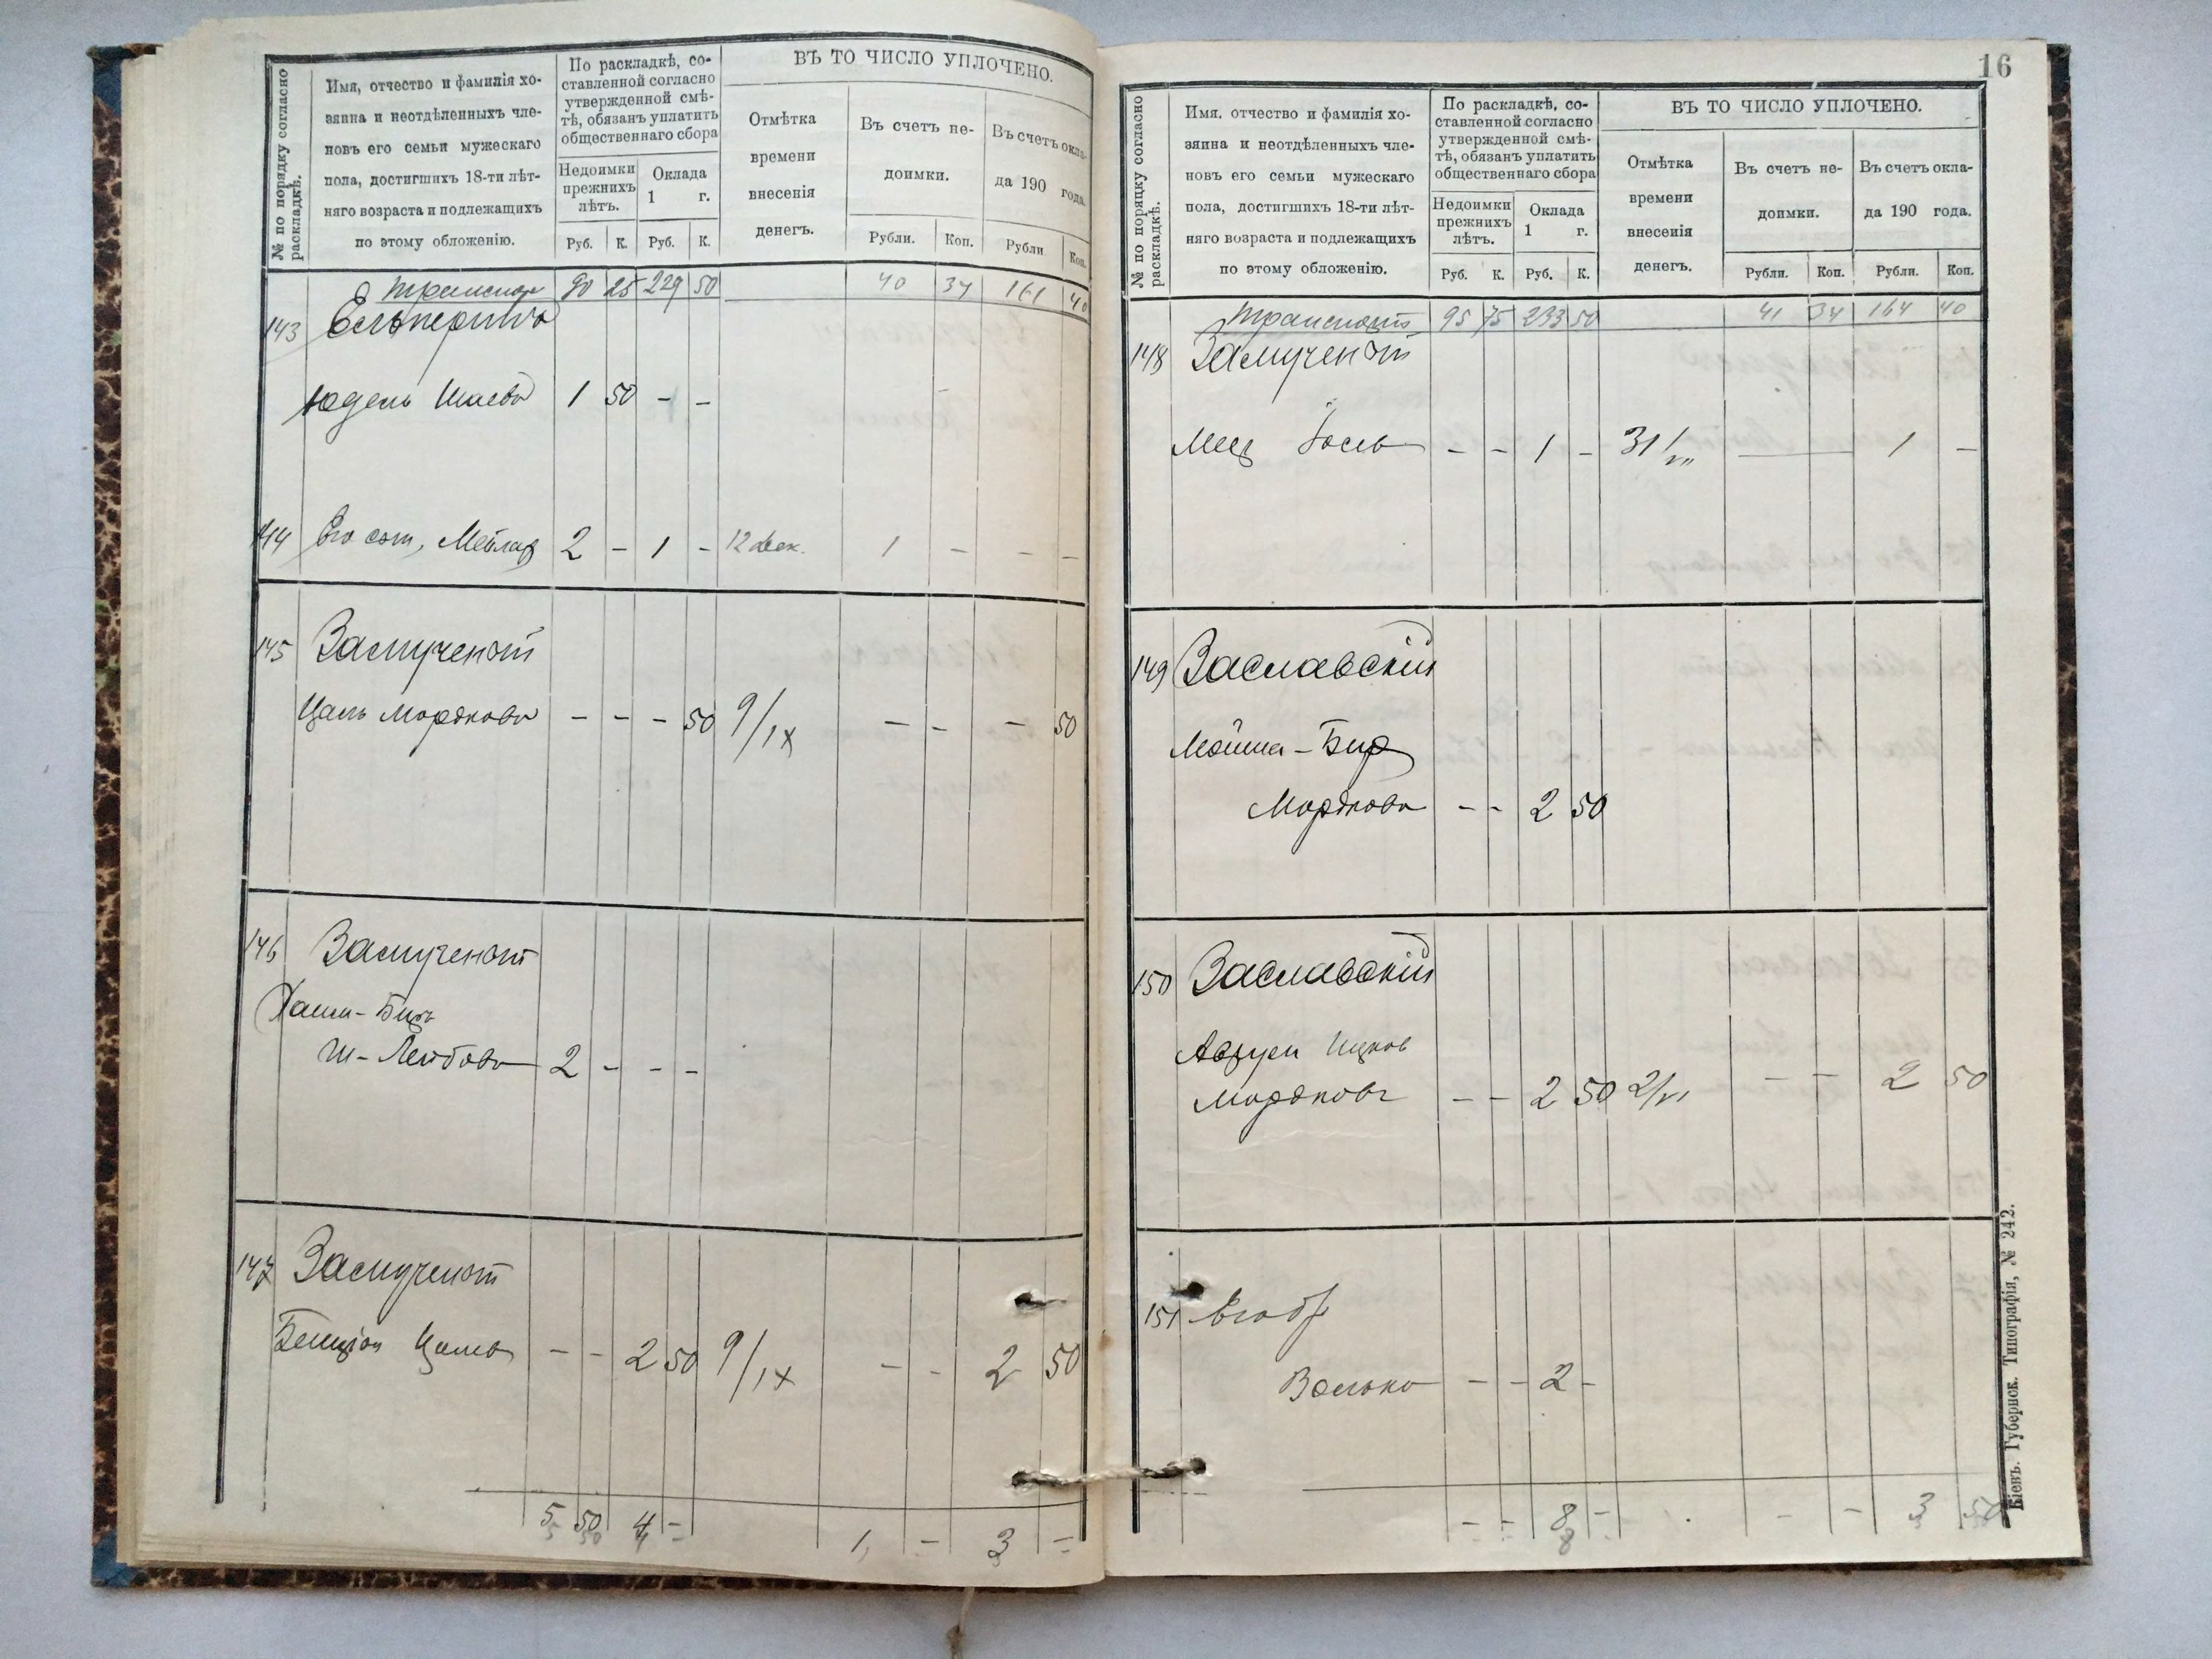 № по порядку согласно раскладкѣ.
Имя, отчество и фамилія хо-
зяина и неотдѣленныхъ чле-
новъ его семьи мужескаго
пола, достигшихъ 18-ти лѣт-
няго возраста и подлежащихъ
по этому обложенію.
По раскладкѣ, со-
ставленной согласно
утвержденной смѣ-
тѣ, обязанъ уплатить
общественнаго сбора
Недоимки прежнихъ лѣтъ.
Оклада 1 г.
Руб. К. Руб. К.
ВЪ ТО ЧИСЛО УПЛОЧЕНО.
Отмѣтка
времени
внесенія
денегъ.
Въ счетъ не-
доимки.
Въ счетъ окла-
да 190 года.
Рубли. Коп. Рубли Коп.
Транспор 90 25 229 50 40 34 161 40
143
Юдель Шаевъ 1 50 - -
144 Его сын, 2 - 1 - 12 дек. 1 - - -
145 Замученот
Цаль Мордковъ - - - 50 9/IX - - - 50
146 Замученот
Хаим-Бер
Ш-Лейбовъ 2 - - -
147 Замученот
Бенціон Цалев - - 2 50 9/IX - - 2 50
5 50 4 - 1 - 3 -
16
№ по порядку согласно раскладкѣ.
Имя. отчество и фамилія хо-
зяина и неотдѣленныхъ чле-
новъ его семьи мужескаго
пола, достигшихъ 18-ти лѣт-
няго возраста и подлежащихъ
по этому обложенію.
По раскладкѣ, со-
ставленной согласно
утвержденной смѣ-
тѣ, обязанъ уплатить
общественнаго сбора
Недоимки прежнихъ лѣтъ.
Оклада 1 г.
Руб. К. Руб. К.
ВЪ ТО ЧИСЛО УПЛОЧЕНО.
Отмѣтка
времени
внесенія
денегъ.
Въ счетъ не-
доимки.
Въ счетъ окла-
да 190 года.
Рубли. Коп. Рубли. Коп.
Транспортъ 95 75 233 50 41 34 164 40
148 Замученот
- - 1 - 31/VII 1 -
149 Заславскій
Мойше-Бер
Мордковъ - - 2 50
150 Заславскій
Аврум Ицков
Мордковъ - - 2 50 2/VI - - 2 50
151 Его бр
Волько - - 2 -
- - 8 - - - 3 50
Кіевъ. Губернск. Типографія, № 242.